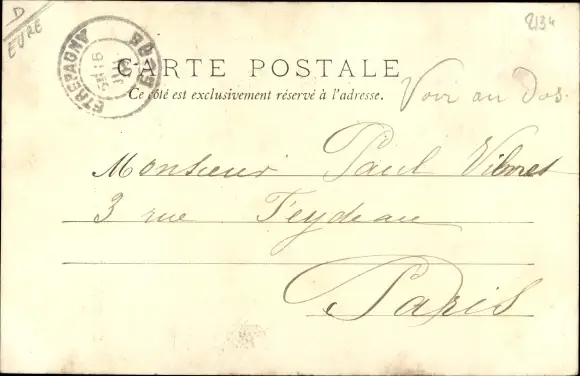 D
EURE
2134
ETREPAGNY
CARTE POSTALE
Ce côté est exclusivement réservé à l'adresse.
Voir au Dos.
Monsieur Paul
3 rue Feydeau
Paris